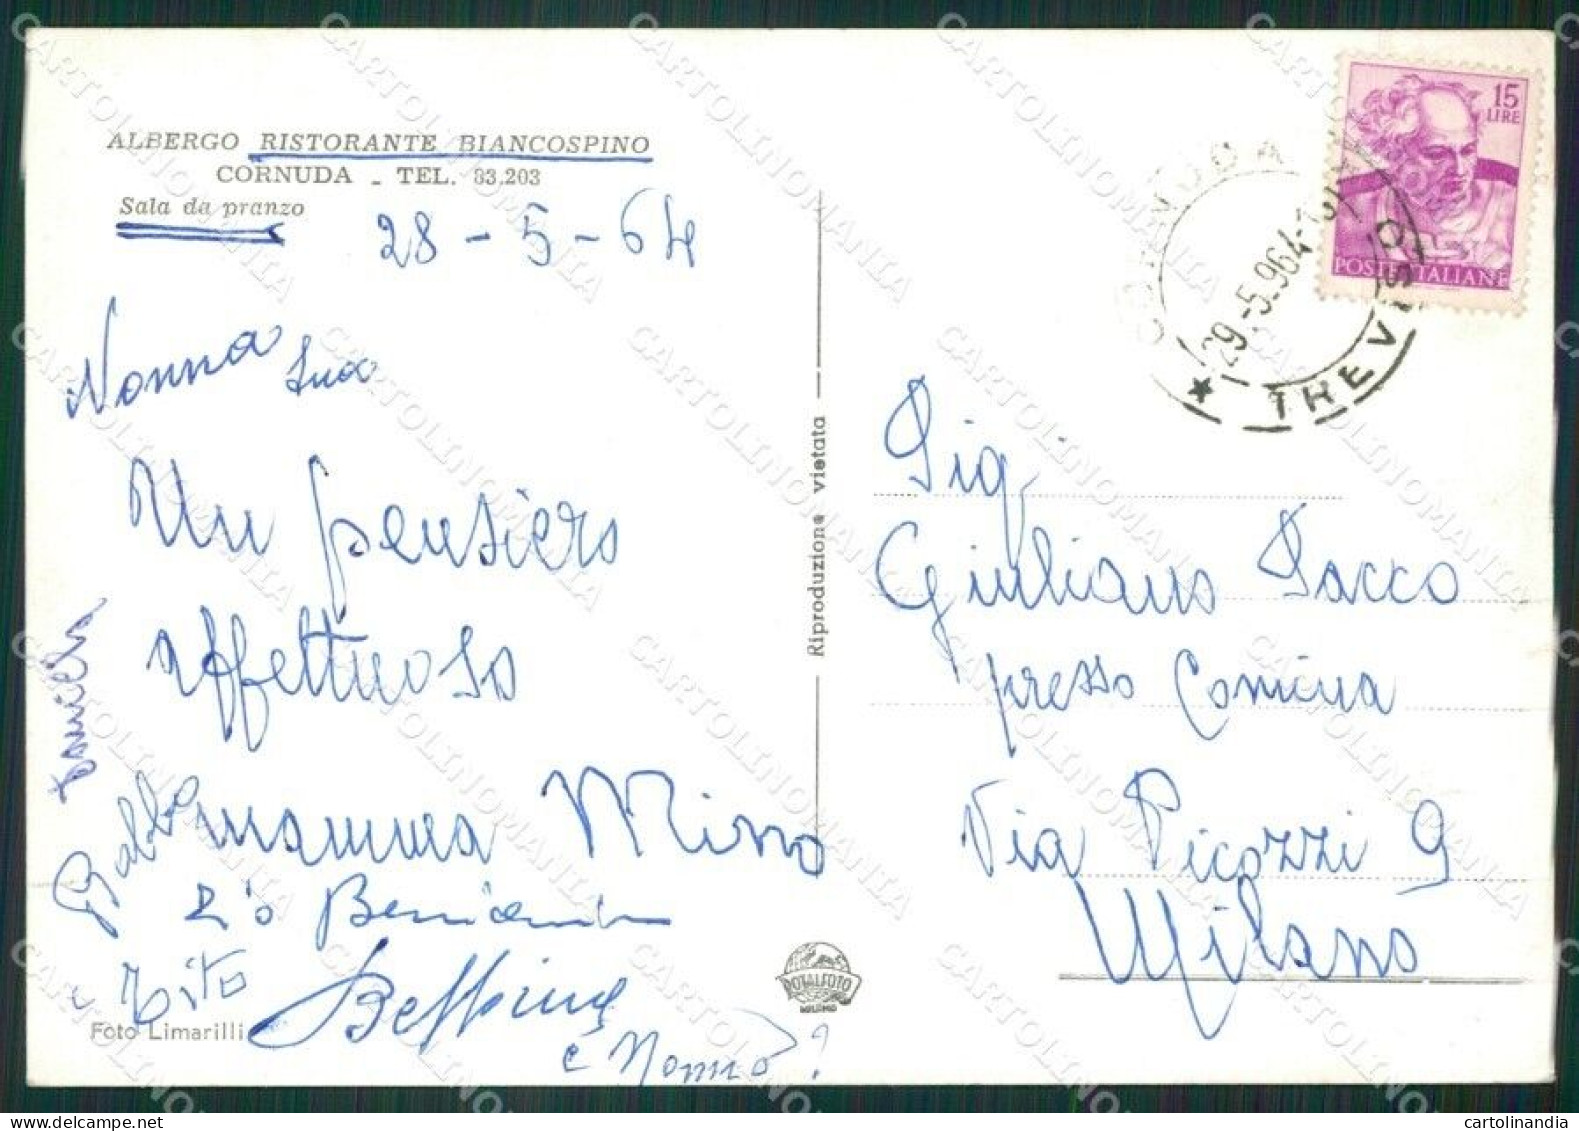 ALBERGO RISTORANTE BIANCOSPINO
CORNUDA - TEL. 83.203
Sala da pranzo
28-5-64
Nonna
Un pensiero
affettuoso
Daniela
Babbo mamma Mirro
Zio Beniamino
e Tito Beppina
e Nonno?
Foto Limarilli
Riproduzione vietata
ROTALFOTO
MILANO
15
LIRE
POSTE ITALIANE
CORNUDA
29.-5.964
TREVISO
Sig.
Giuliano Sacco
presso Comina
Via Picozzi 9
Milano
CARTOLINOMANIA
cartolinandia